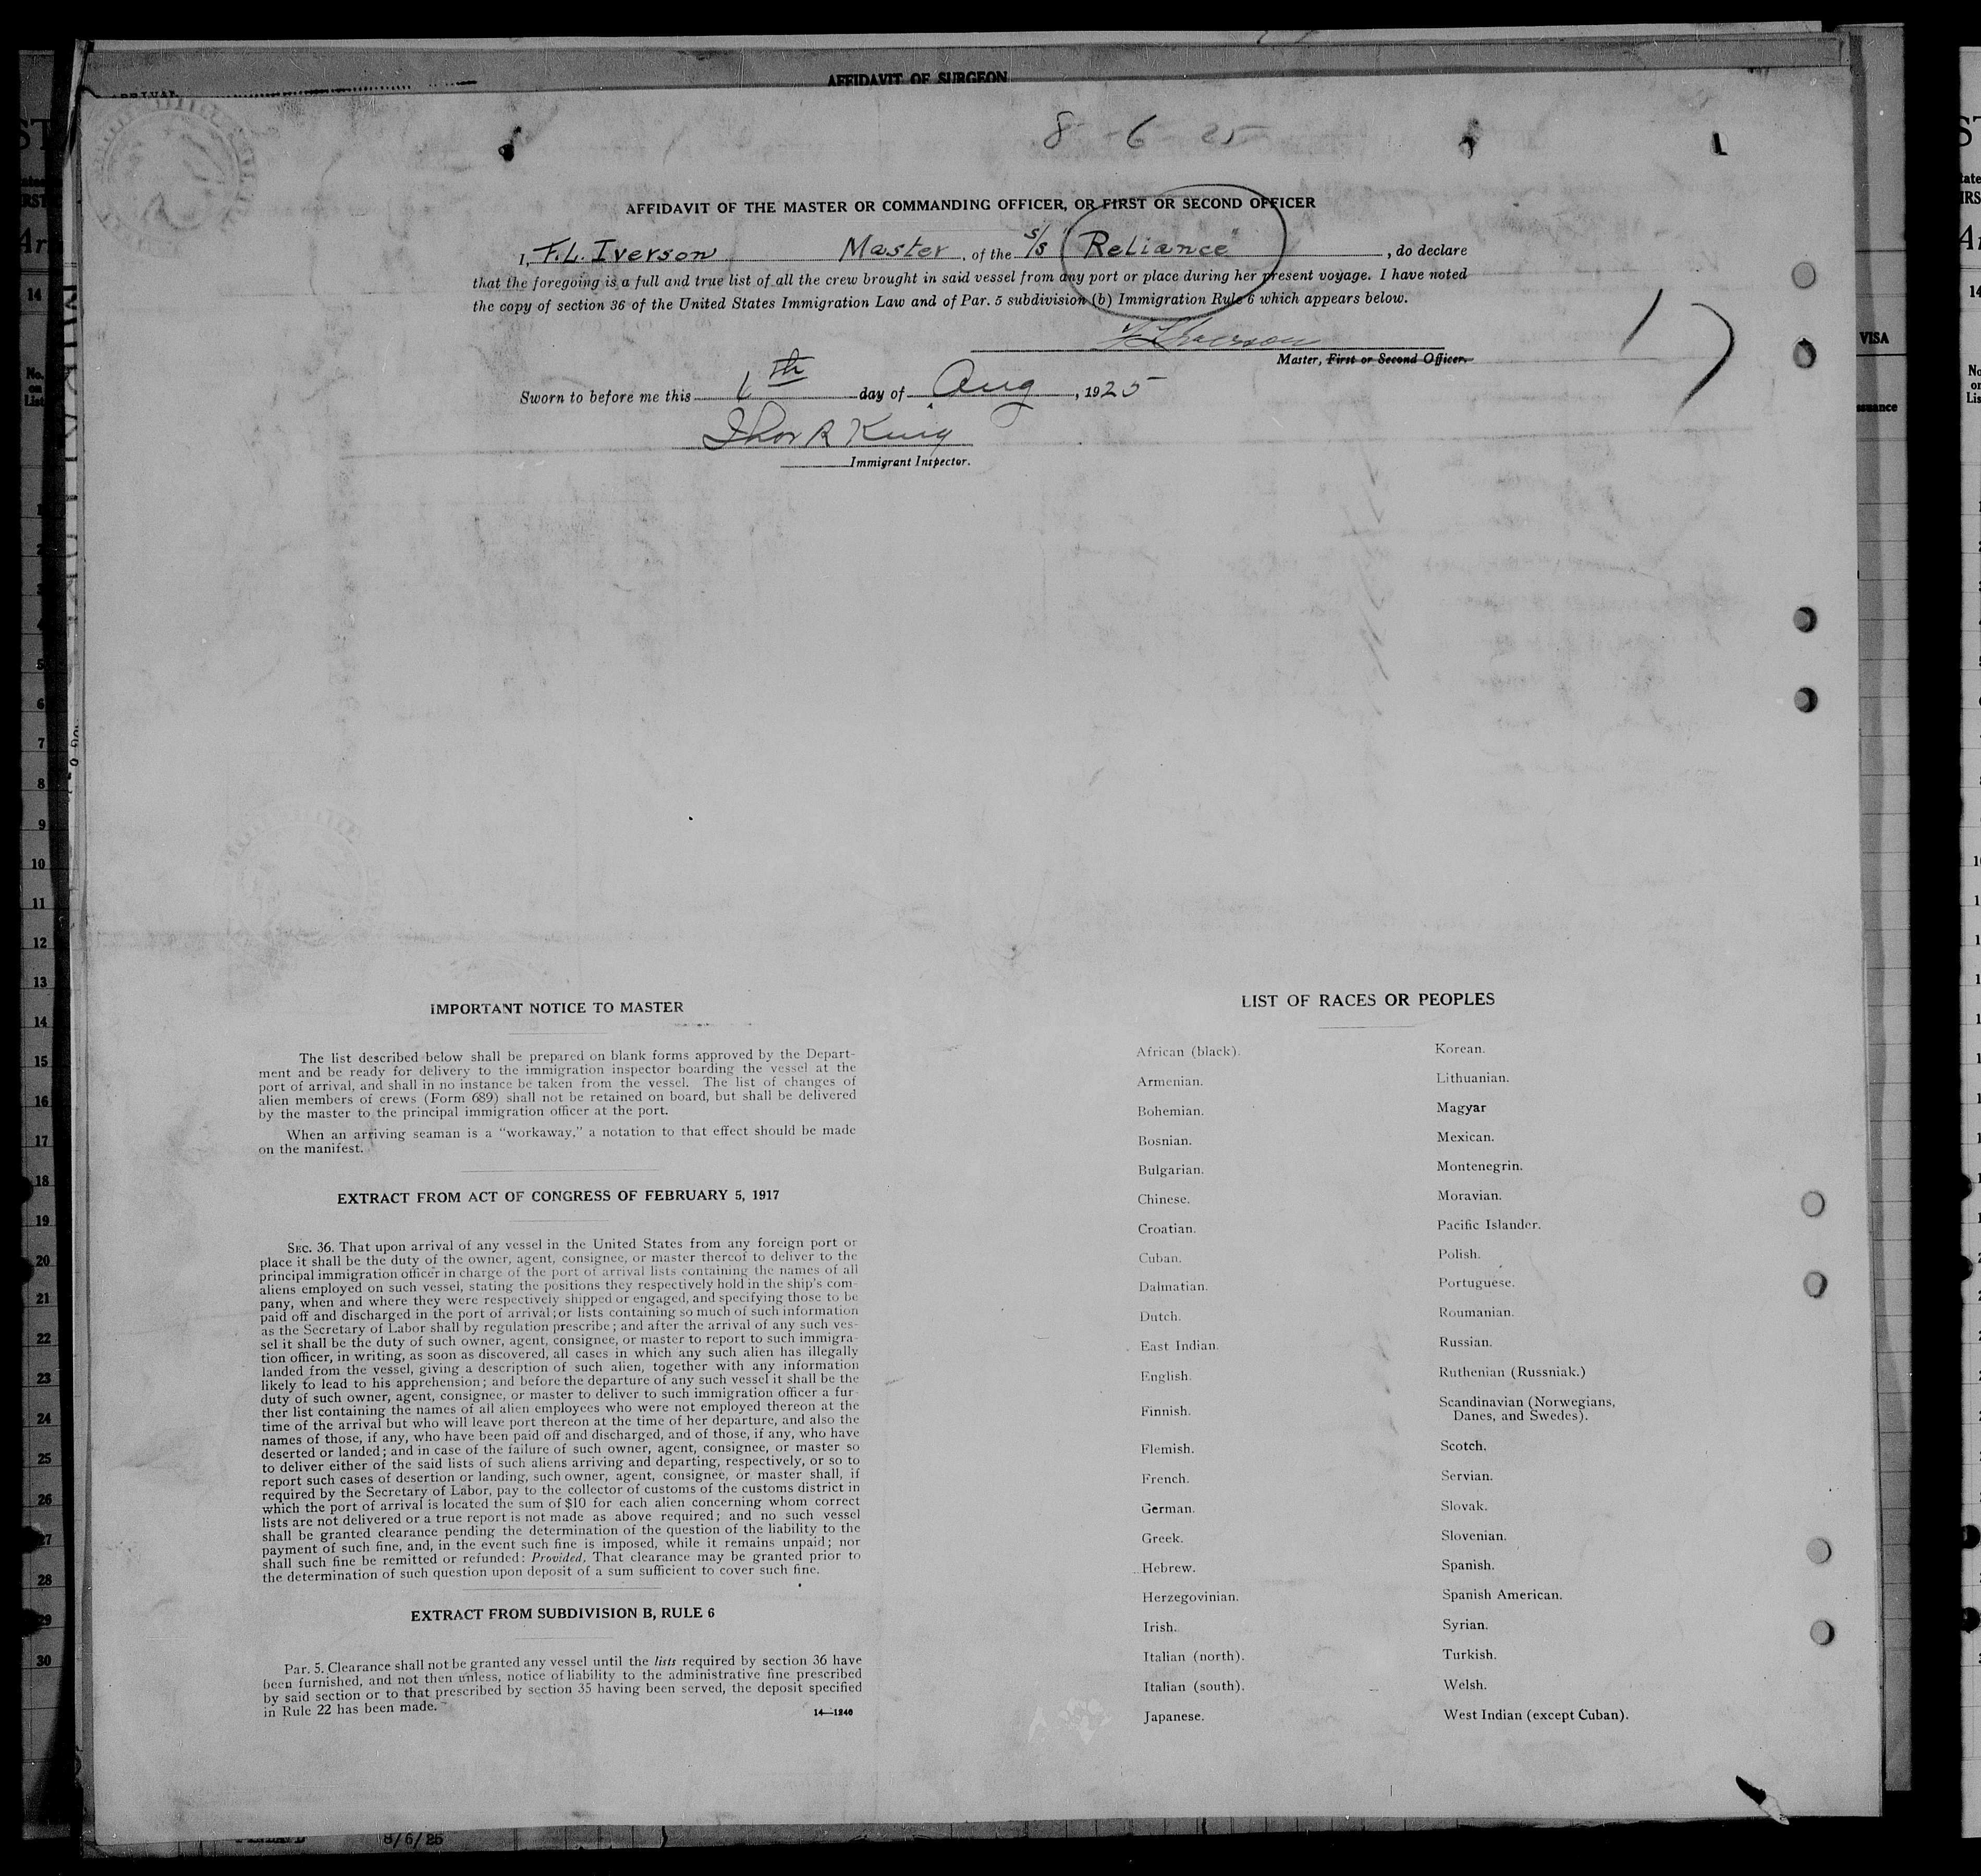 AFFIDAVIT OF SURGEON
8-6-25
AFFIDAVIT OF THE MASTER OR COMMANDING OFFICER, OR FIRST OR SECOND OFFICER
I, F.L. Iverson Master, of the S/S "Reliance", do declare
that the foregoing is a full and true list of all the crew brought in said vessel from any port or place during her present voyage. I have noted
the copy of section 36 of the United States Immigration Law and of Par. 5 subdivision (b) Immigration Rule 6 which appears below.
F L Iverson
Master, First or Second Officer.
Sworn to before me this 6th day of Aug, 1925
R King
Immigrant Inspector.
VISA
IMPORTANT NOTICE TO MASTER
The list described below shall be prepared on blank forms approved by the Depart-
ment and be ready for delivery to the immigration inspector boarding the vessel at the
port of arrival, and shall in no instance be taken from the vessel. The list of changes of
alien members of crews (Form 689) shall not be retained on board, but shall be delivered
by the master to the principal immigration officer at the port.
When an arriving seaman is a "workaway," a notation to that effect should be made
on the manifest.
EXTRACT FROM ACT OF CONGRESS OF FEBRUARY 5, 1917
SEC. 36. That upon arrival of any vessel in the United States from any foreign port or
place it shall be the duty of the owner, agent, consignee, or master thereof to deliver to the
principal immigration officer in charge of the port of arrival lists containing the names of all
aliens employed on such vessel, stating the positions they respectively hold in the ship's com-
pany, when and where they were respectively shipped or engaged, and specifying those to be
paid off and discharged in the port of arrival; or lists containing so much of such information
as the Secretary of Labor shall by regulation prescribe; and after the arrival of any such ves-
sel it shall be the duty of such owner, agent, consignee, or master to report to such immigra-
tion officer, in writing, as soon as discovered, all cases in which any such alien has illegally
landed from the vessel, giving a description of such alien, together with any information
likely to lead to his apprehension; and before the departure of any such vessel it shall be the
duty of such owner, agent, consignee, or master to deliver to such immigration officer a fur-
ther list containing the names of all alien employees who were not employed thereon at the
time of the arrival but who will leave port thereon at the time of her departure, and also the
names of those, if any, who have been paid off and discharged, and of those, if any, who have
deserted or landed; and in case of the failure of such owner, agent, consignee, or master so
to deliver either of the said lists of such aliens arriving and departing, respectively, or so to
report such cases of desertion or landing, such owner, agent, consignee, or master shall, if
required by the Secretary of Labor, pay to the collector of customs of the customs district in
which the port of arrival is located the sum of $10 for each alien concerning whom correct
lists are not delivered or a true report is not made as above required; and no such vessel
shall be granted clearance pending the determination of the question of the liability to the
payment of such fine, and, in the event such fine is imposed, while it remains unpaid; nor
shall such fine be remitted or refunded: Provided, That clearance may be granted prior to
the determination of such question upon deposit of a sum sufficient to cover such fine.
EXTRACT FROM SUBDIVISION B, RULE 6
Par. 5. Clearance shall not be granted any vessel until the lists required by section 36 have
been furnished, and not then unless, notice of liability to the administrative fine prescribed
by said section or to that prescribed by section 35 having been served, the deposit specified
in Rule 22 has been made.
14—1240
LIST OF RACES OR PEOPLES
African (black).
Armenian.
Bohemian.
Bosnian.
Bulgarian.
Chinese.
Croatian.
Cuban.
Dalmatian.
Dutch.
East Indian.
English.
Finnish.
Flemish.
French.
German.
Greek.
Hebrew.
Herzegovinian.
Irish.
Italian (north).
Italian (south).
Japanese.
Korean.
Lithuanian.
Magyar
Mexican.
Montenegrin.
Moravian.
Pacific Islander.
Polish.
Portuguese.
Roumanian.
Russian.
Ruthenian (Russniak.)
Scandinavian (Norwegians,
Danes, and Swedes).
Scotch.
Servian.
Slovak.
Slovenian.
Spanish.
Spanish American.
Syrian.
Turkish.
Welsh.
West Indian (except Cuban).
8/6/25